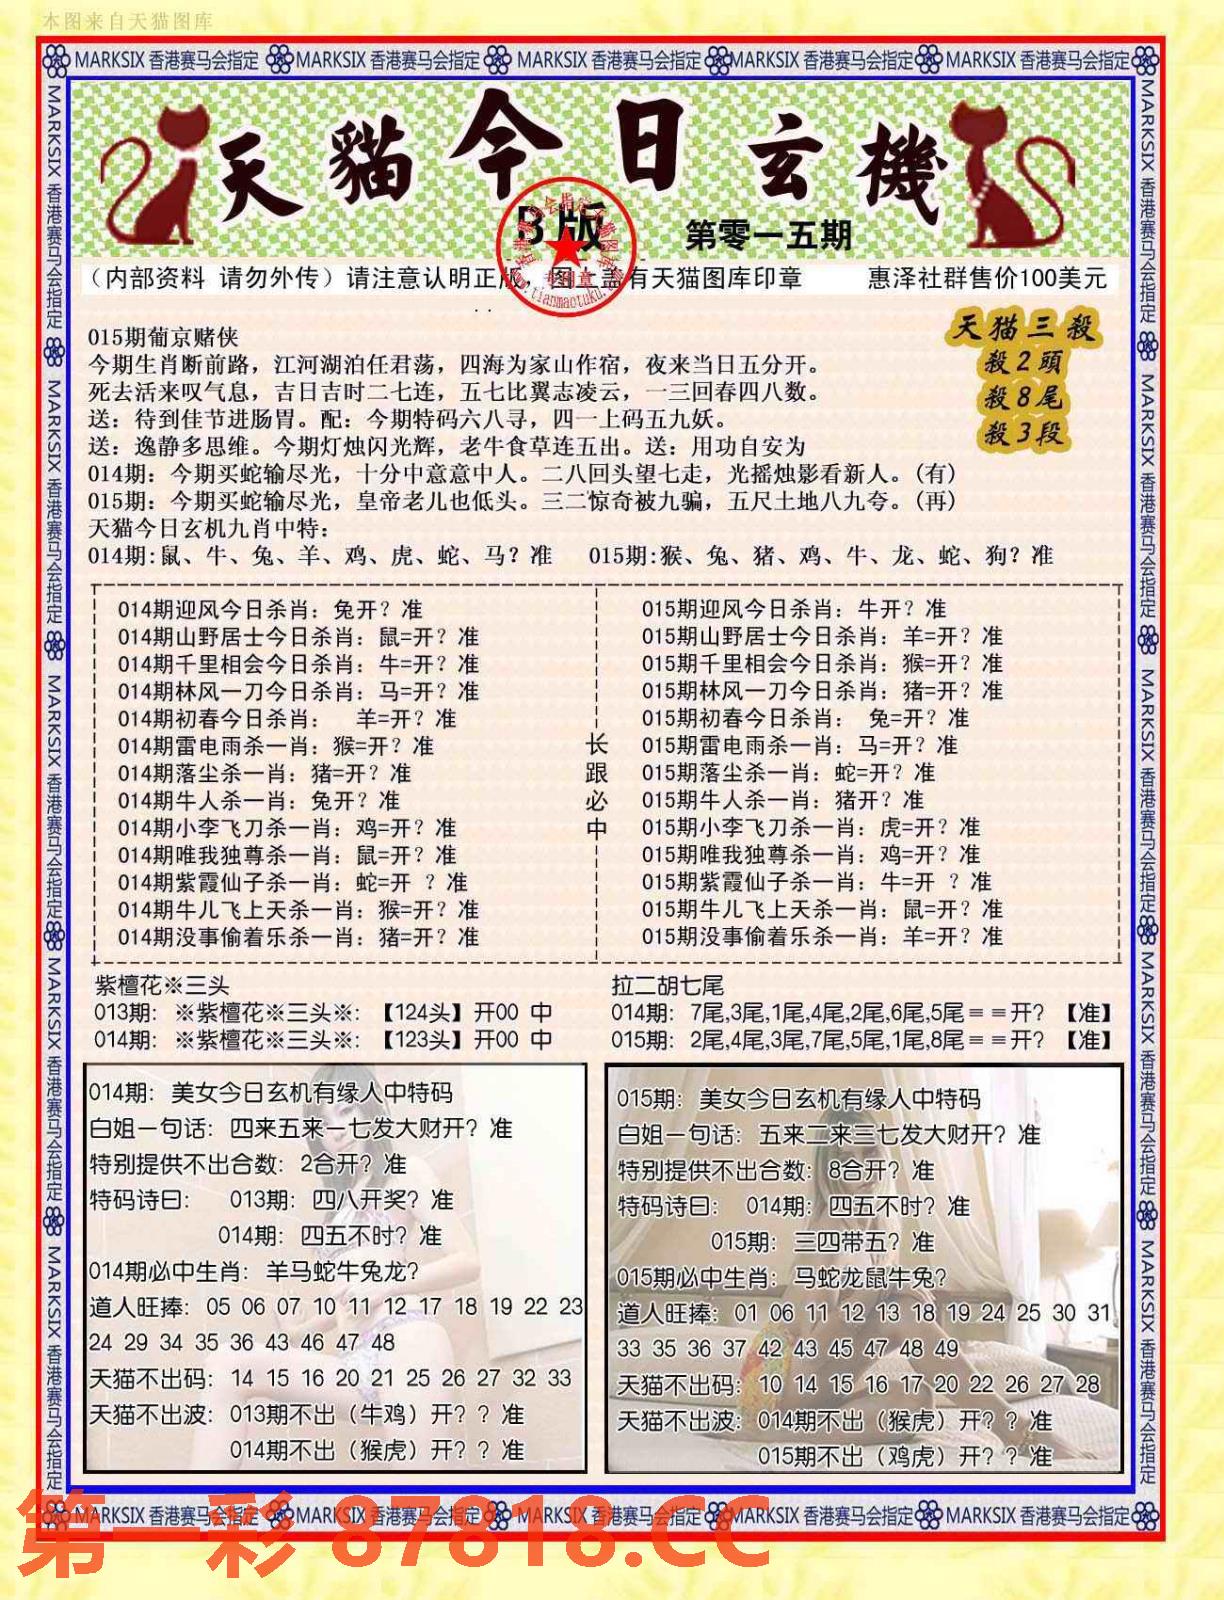 本图来自天猫图库
MARKSIX 香港赛马会指定 MARKSIX 香港赛马会指定 MARKSIX 香港赛马会指定 MARKSIX 香港赛马会指定 MARKSIX 香港赛马会指定
天貓今日玄機
B版
第零一五期
（内部资料 请勿外传）请注意认明正版，图上盖有天猫图库印章 惠泽社群售价100美元
015期葡京赌侠
今期生肖断前路，江河湖泊任君荡，四海为家山作宿，夜来当日五分开。
死去活来叹气息，吉日吉时二七连，五七比翼志凌云，一三回春四八数。
送：待到佳节进肠胃。配：今期特码六八寻，四一上码五九妖。
送：逸静多思维。今期灯烛闪光辉，老牛食草连五出。送：用功自安为
014期：今期买蛇输尽光，十分中意意中人。二八回头望七走，光摇烛影看新人。(有)
015期：今期买蛇输尽光，皇帝老儿也低头。三二惊奇被九骗，五尺土地八九夸。(再)
天猫三殺
殺2頭
殺8尾
殺3段
天猫今日玄机九肖中特：
014期:鼠、牛、兔、羊、鸡、虎、蛇、马？准 015期:猴、兔、猪、鸡、牛、龙、蛇、狗？准
014期迎风今日杀肖：兔开？准
014期山野居士今日杀肖：鼠=开？准
014期千里相会今日杀肖：牛=开？准
014期林风一刀今日杀肖：马=开？准
014期初春今日杀肖： 羊=开？准
014期雷电雨杀一肖：猴=开？准
014期落尘杀一肖：猪=开？准
014期牛人杀一肖：兔开？准
014期小李飞刀杀一肖：鸡=开？准
014期唯我独尊杀一肖：鼠=开？准
014期紫霞仙子杀一肖：蛇=开 ？准
014期牛儿飞上天杀一肖：猴=开？准
014期没事偷着乐杀一肖：猪=开？准
长跟必中
015期迎风今日杀肖：牛开？准
015期山野居士今日杀肖：羊=开？准
015期千里相会今日杀肖：猴=开？准
015期林风一刀今日杀肖：猪=开？准
015期初春今日杀肖： 兔=开？准
015期雷电雨杀一肖：马=开？准
015期落尘杀一肖：蛇=开？准
015期牛人杀一肖：猪开？准
015期小李飞刀杀一肖：虎=开？准
015期唯我独尊杀一肖：鸡=开？准
015期紫霞仙子杀一肖：牛=开 ？准
015期牛儿飞上天杀一肖：鼠=开？准
015期没事偷着乐杀一肖：羊=开？准
紫檀花※三头
013期：※紫檀花※三头※：【124头】开00 中
014期：※紫檀花※三头※：【123头】开00 中
拉二胡七尾
014期：7尾,3尾,1尾,4尾,2尾,6尾,5尾＝＝开？【准】
015期：2尾,4尾,3尾,7尾,5尾,1尾,8尾＝＝开？【准】
014期：美女今日玄机有缘人中特码
白姐一句话：四来五来一七发大财开？准
特别提供不出合数：2合开？准
特码诗曰： 013期：四八开奖？准
014期：四五不时？准
014期必中生肖：羊马蛇牛兔龙？
道人旺捧：05 06 07 10 11 12 17 18 19 22 23
24 29 34 35 36 43 46 47 48
天猫不出码：14 15 16 20 21 25 26 27 32 33
天猫不出波：013期不出（牛鸡）开？？准
014期不出（猴虎）开？？准
015期：美女今日玄机有缘人中特码
白姐一句话：五来二来三七发大财开？准
特别提供不出合数：8合开？准
特码诗曰： 014期：四五不时？准
015期：三四带五？准
015期必中生肖：马蛇龙鼠牛兔？
道人旺捧：01 06 11 12 13 18 19 24 25 30 31
33 35 36 37 42 43 45 47 48 49
天猫不出码：10 14 15 16 17 20 22 26 27 28
天猫不出波：014期不出（猴虎）开？？准
015期不出（鸡虎）开？？准
MARKSIX 香港赛马会指定 MARKSIX 香港赛马会指定 MARKSIX 香港赛马会指定 MARKSIX 香港赛马会指定 MARKSIX 香港赛马会指定
第一彩 87818.CC
MARKSIX 香港赛马会指定 MARKSIX 香港赛马会指定 MARKSIX 香港赛马会指定 MARKSIX 香港赛马会指定 MARKSIX 香港赛马会指定
MARKSIX 香港赛马会指定 MARKSIX 香港赛马会指定 MARKSIX 香港赛马会指定 MARKSIX 香港赛马会指定 MARKSIX 香港赛马会指定